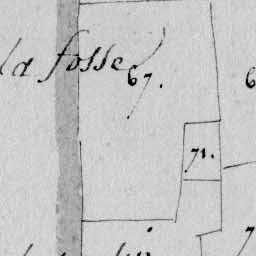 la fosse
67.
71.